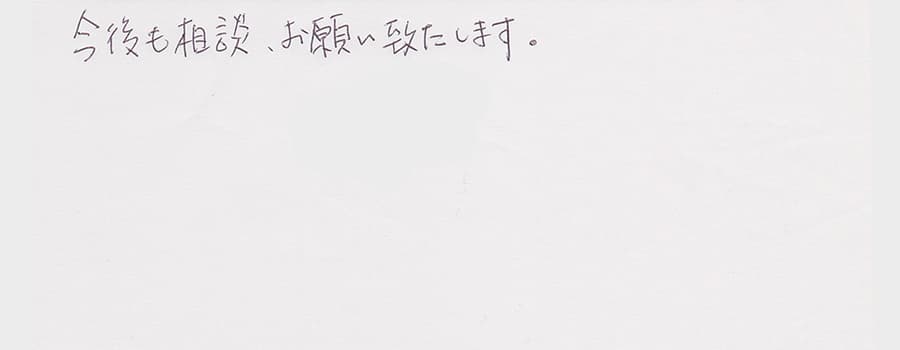 今後も相談、お願い致たします。